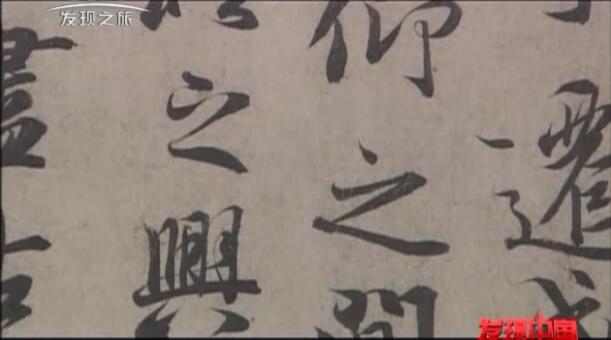 发现之旅
遷感
仰之間
之興
盡古
发现中国